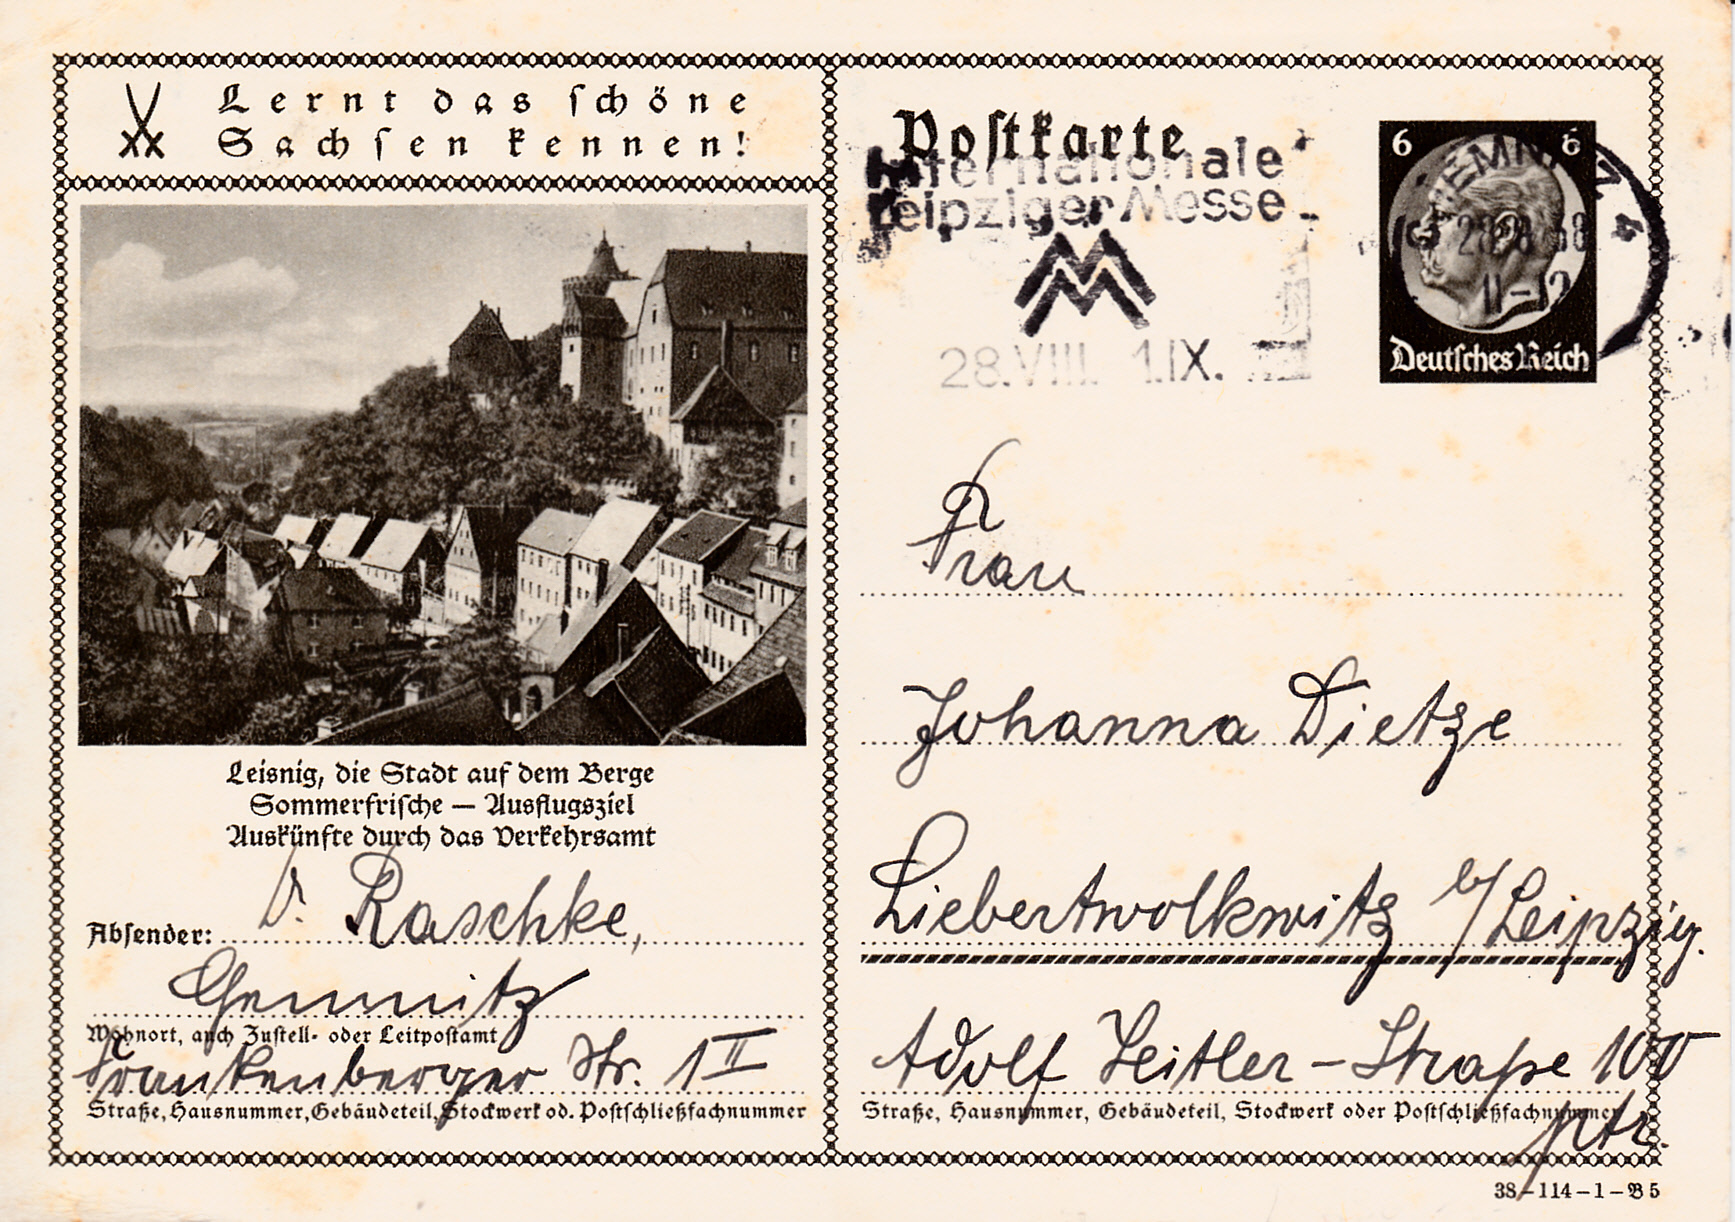 Lernt das schöne
Sachsen kennen!
Leisnig, die Stadt auf dem Berge
Sommerfrische — Ausflugsziel
Auskünfte durch das Verkehrsamt
Absender: Raschke,
Chemnitz
Wohnort, auch Zustell- oder Leitpostamt
Frankenberger Str. 1 II
Straße, Hausnummer, Gebäudeteil, Stockwerk od. Postschließfachnummer
Postkarte
Internationale
Leipziger Messe
28.VIII. 1.IX.
6 6
CHEMNITZ 4
28.8.38
11-12
Deutsches Reich
Frau
Johanna Dietze
Liebertwolkwitz b/Leipzig.
Adolf Hitler-Straße 100
Straße, Hausnummer, Gebäudeteil, Stockwerk oder Postschließfachnummer
ptr.
38-114-1-B5